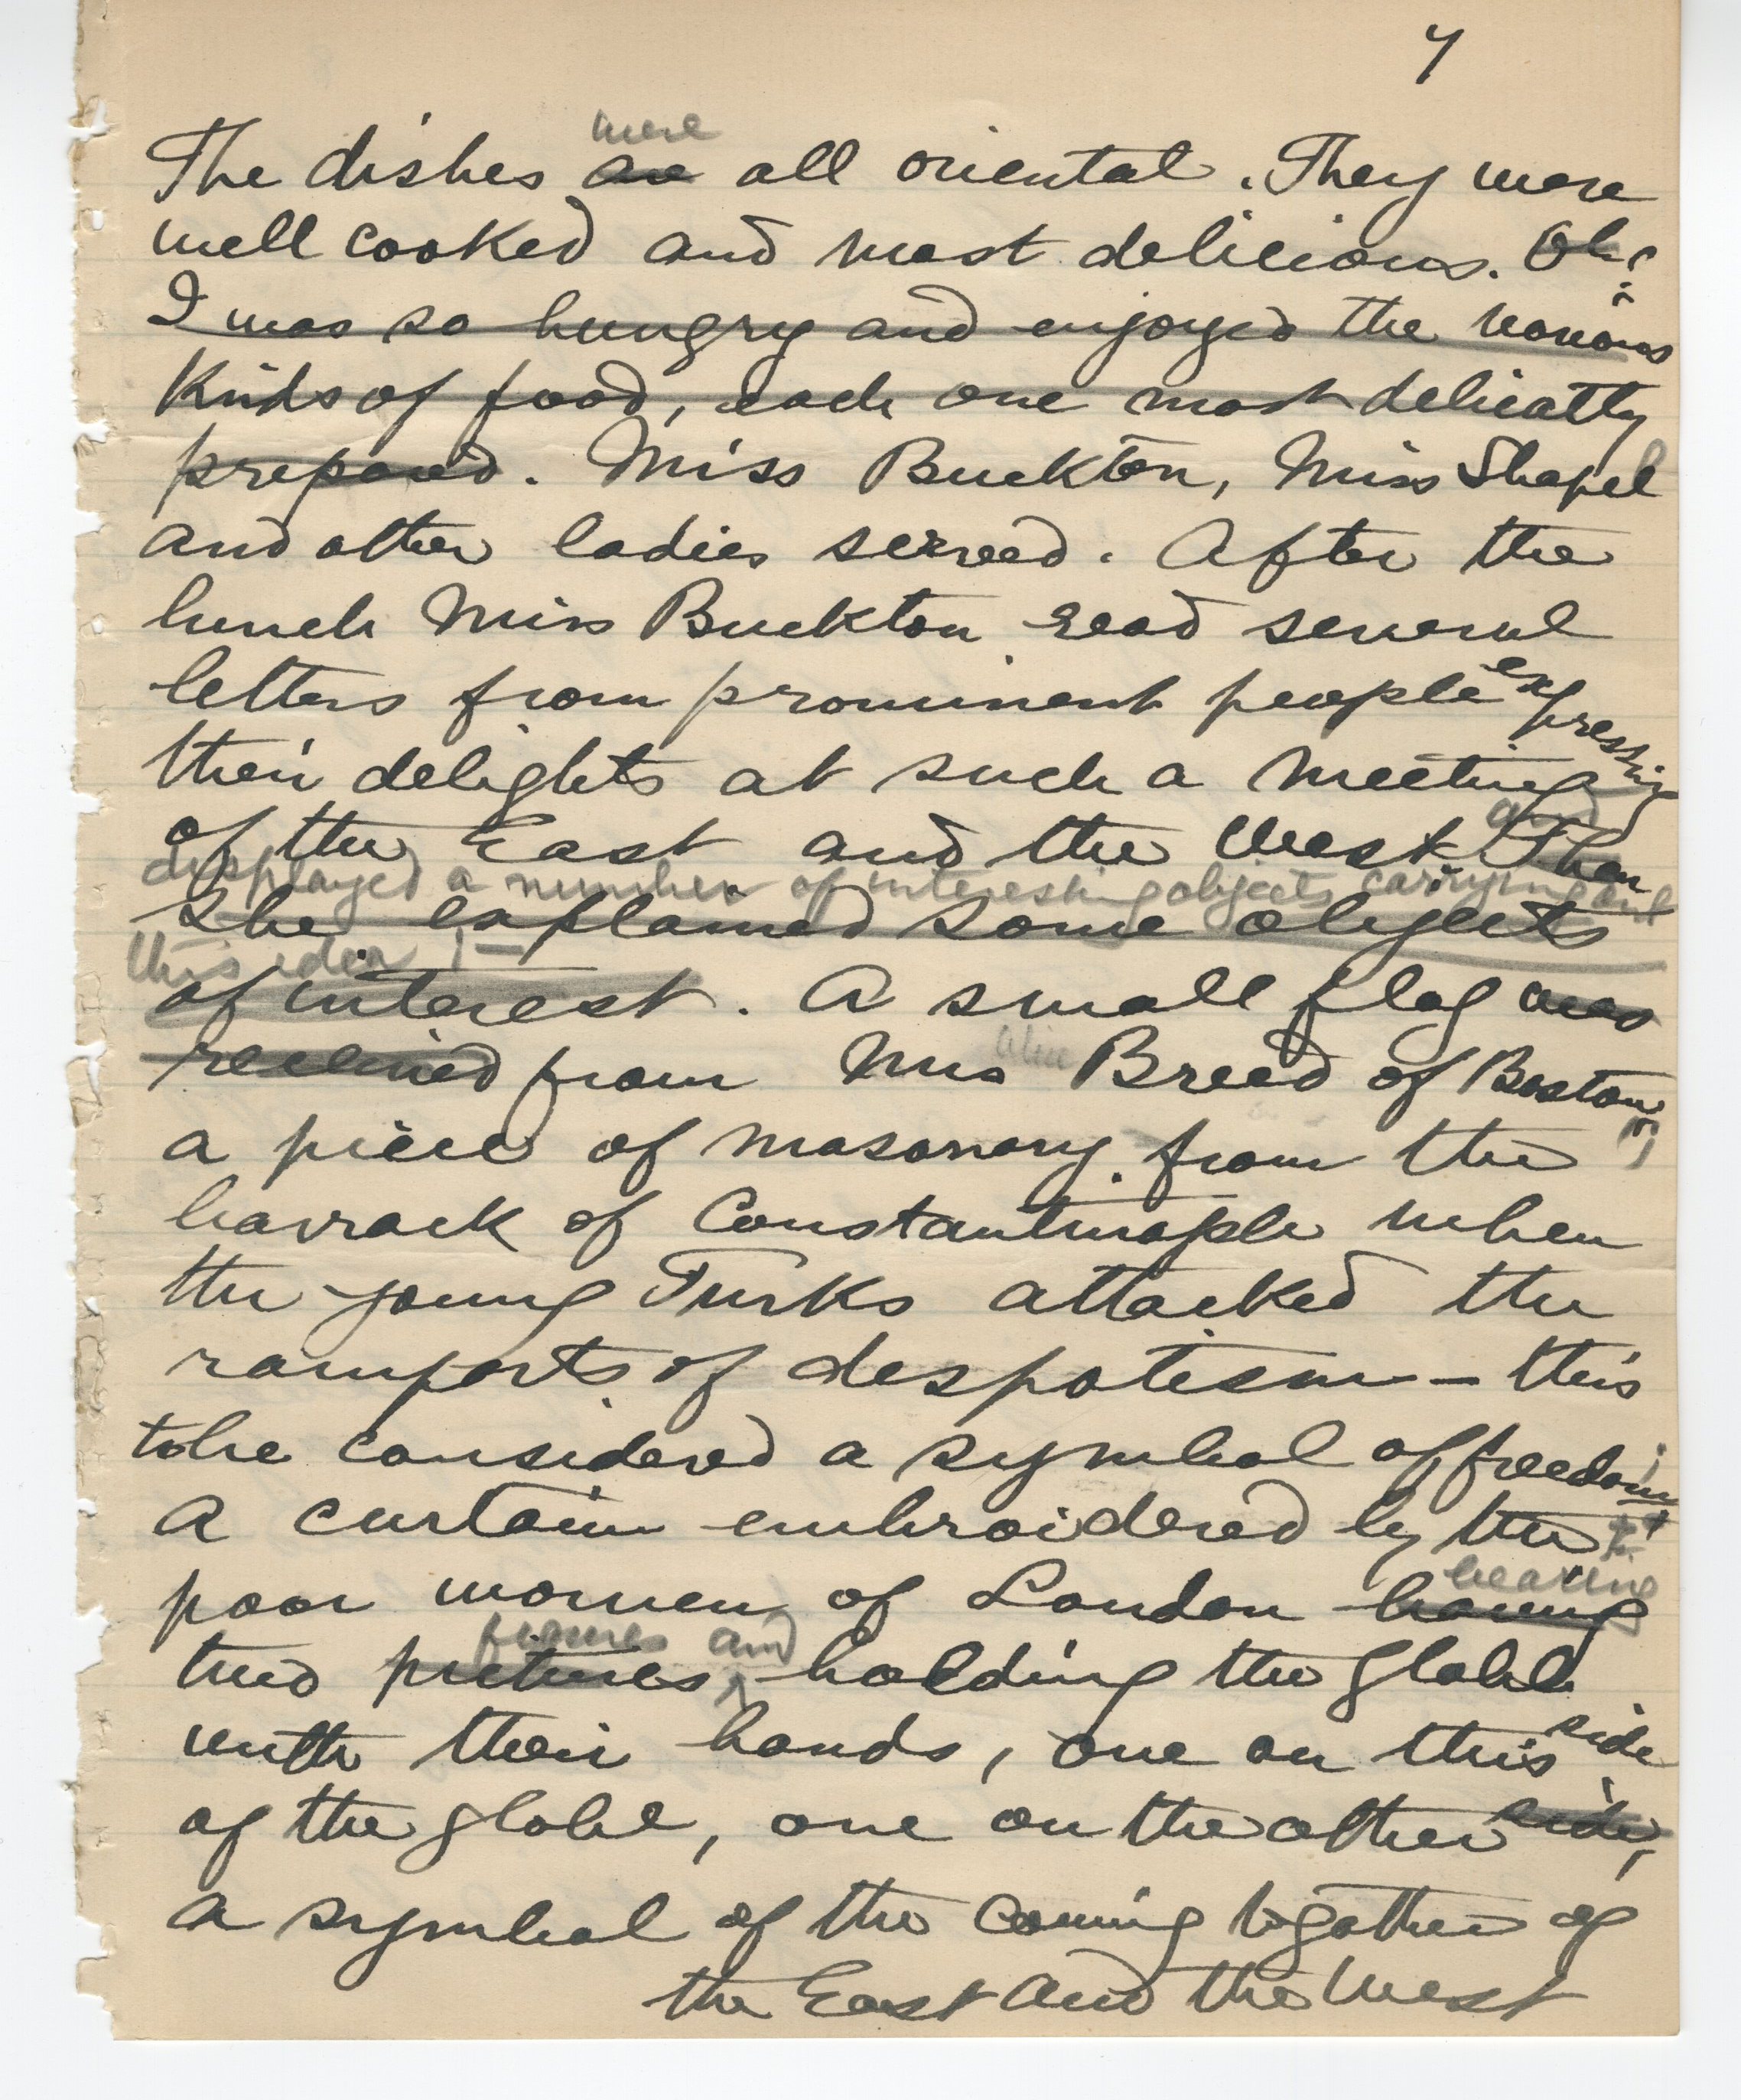 7
were
The dishes are all oriental. They were
well cooked and most delicious. Oh!
I was so hungry and enjoyed the various
kinds of food, each one most delicatly
prepared. Miss Buckton, Miss Shapel
and other ladies served. After the
lunch Miss Buckton read several
letters from prominent people expressing
their delights at such a meeting
and
of the East and the West. Then
displayed a number of interesting objects carrying out
she explained some objects
this idea :—
of interest. A small flag was
received from Mrs Alice Breed of Boston,
a piece of masonary from the
barrack of Constantinople when
the young Turks attacked the
ramparts of despotism — this
to be considered a symbol of freedom;
a curtain embroidered by the
bearing
poor women of London having
figures and
two pictures, holding the globe
with their hands, one on this side
of the globe, one on the other side,
a symbol of the coming together of
the East and the West